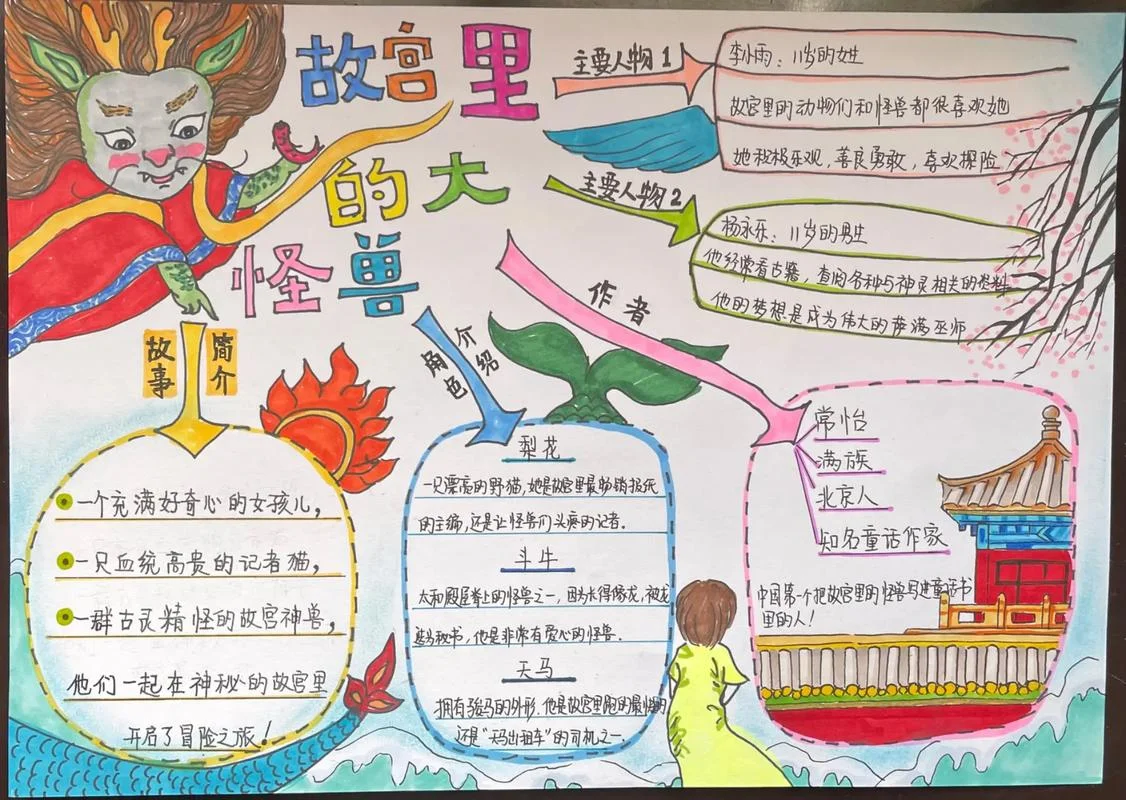 故宫里
的大
怪兽
主要人物1
李小雨：11岁的女生
故宫里的动物们和怪兽都很喜欢她
她积极乐观，善良勇敢，喜欢探险
主要人物2
杨永乐：11岁的男生
他经常看古籍，查阅各种与神灵相关的资料
他的梦想是成为伟大的萨满巫师
故事
简介
一个充满好奇心的女孩儿，
一只血统高贵的记者猫，
一群古灵精怪的故宫神兽，
他们一起在神秘的故宫里
开启了冒险之旅！
角色
介绍
梨花
一只漂亮的野猫，她是故宫里最畅销报纸
的主编，还是让怪兽们头疼的记者。
斗牛
太和殿屋脊上的怪兽之一，因为长得像龙，被龙
选为秘书，他是非常有爱心的怪兽。
天马
拥有骏马的外形，他是故宫里跑的最快的
还是“天马出租车”的司机之一。
作者
常怡
满族
北京人
知名童话作家
中国第一个把故宫里的怪兽写进童话书
里的人！